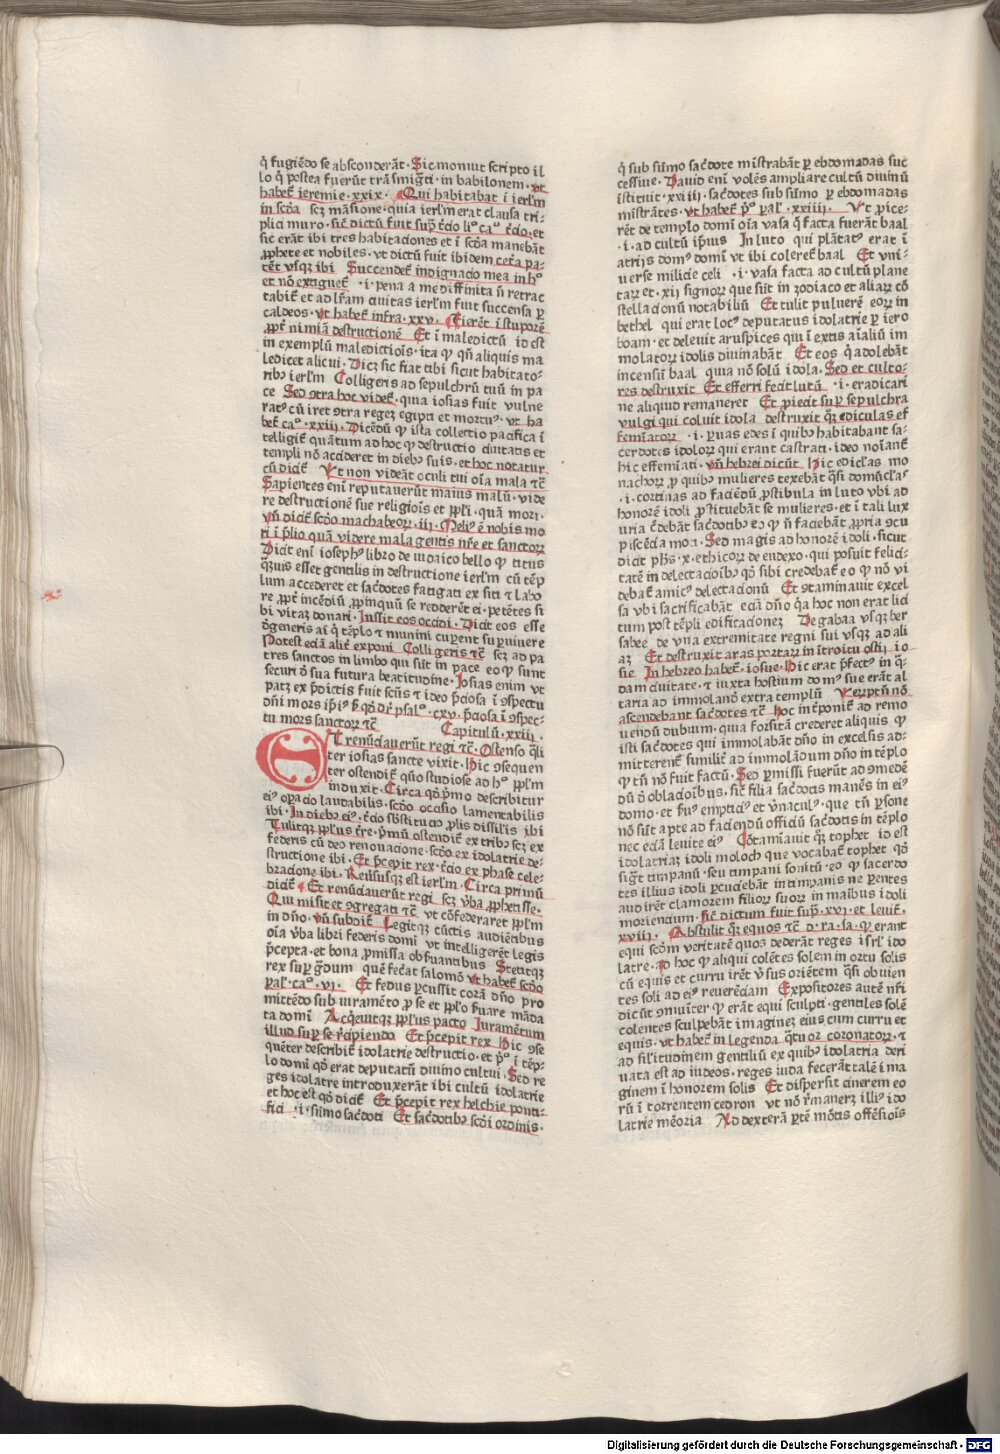 q̄ fugiēdo se absconderāt. Sic moniut scripto il
lo q̄ postea fuerūt trāsmigᵃti in babilonem. vt
habet̄ ieremie xxix. Qui habitabat ī ierl̄m
in scd̄a scz māsione. quia ierl̄m erat clausa tri-
plici muro. sic̄ dictū fuit supᵃ t̄cio liᵒ caᵒ t̄cio. et
sic erāt ibi tres habitaciones et ī scd̄a manebāt
ꝓphete et nobiles. vt dictū fuit ibidem cet̄a pa-
tēt vsqꝫ ibi Succendet̄ indignacio mea in hᵒ
et nō extinguet̄ .i. pena a me diffinita n̄ retrac
tabit̄ et ad lr̄am ciuitas ierl̄m fuit succensa p̱
caldeos. vt habet̄ infra xxv. Fierēt ī stuporē
ꝓpt̄ nimiā destructionē Et ī maledictū id est
in exemplū maledictiōis. ita ꝙ qn̄ aliquis ma
ledicet alicui. Dicꝫ sic fiat tibi sicut habitato-
ribꝰ ierl̄m Colligeris ad sepulchrū tuū in pa
ce Sed ꝯtra hoc videt̄. quia iosias fuit vulne
ratꝰ cū iret ꝯtra regeꝫ egipti et mortuꝰ. vt ha
bet̄ caᵒ xxiii. Dicēdū ꝙ ista collectio pacifica ī
telligit̄ quātum ad hoc ꝙ destructio ciuitatis et
templi nō accideret in diebꝰ suis. et hoc notatur
cū dicit̄ Vt non videāt oculi tui oīa mala tc̄
Sapientes enī reputauerūt maius malū. vide
re destructionē sue religiōis et ppl̄i. quā mori.
vn̄ dicit̄ scd̄o machabeoꝝ. iii. Meliꝰ ē nobis mo
ri ī p̄lio quā videre mala gentis nr̄e et sanctoꝝ
Dicit enī iosephꝰ libro de iudaico bello ꝙ titus
qᵃꝫuis esset gentilis in destructione ierl̄m cū tēp
lum accederet et sac̄dotes fatigati ex siti ⁊ labo
re ꝓpt̄ incēdiū ꝓpinquū se redderēt ei. petētes si
bi vitaꝫ donari. Iussit eos occidi. Dicit eos esse
d̄generis aīi qᵢ tēplo ⁊ munini cup̱ent sup̱uiuere
Potest eciā alit̄ exponi Colligeris tc̄ scꝫ ad pa
tres sanctos in limbo qui sūt in pace eo ꝙ sunt
securi d̄ sua futura beatitudine. Iosias enim vt
patꝫ ex p̄dictis fuit scūs ⁊ ideo p̄ciosa ī ꝯspectu
dn̄i mors ip̄iꝰ scd̄m qᵒ dr̄ psal̄. cxv. p̄ciosa ī ꝯspec-
tu mors sanctoꝝ tc̄ Capitulū. xxiii.
Et renūciauerūt regi tc̄. Ostenso qᵃli
ter iosias sancte vixit. Hic ꝯsequen
ter ostendit̄ quō studiose ad hᵒ ppl̄m
induxit. Circa qᵒ pᵢmo describitur
eiꝰ opᵃcio laudabilis. scd̄o occasio lamentabilis
ibi. In diebꝰ eiꝰ. t̄cio sb̄stitucio ꝓlis dissil̄is ibi
Tulitqꝫ ppl̄us t̄re. pᵢmū ostendit̄ ex tribꝰ scꝫ ex
federis cū deo renouacione. scd̄o ex idolatrie de-
structione ibi. Et p̄cepit rex. t̄cio ex phase cele-
bracione ibi. Reūsusqꝫ est ierl̄m. Circa primū
dicit̄ Et renūciauerūt regi scꝫ v̄ba ꝓphetisse.
Qui misit et ꝯgregati tc̄ vt cōfederaret ppl̄m
in dn̄o. vn̄ subdit̄ Legitqꝫ cūctis audiētibus
oīa v̄ba libri federis domī vt intelligerēt legis
p̄cepta. et bona ꝓmissa obs̄uantibus Stetitqꝫ
rex sup̱ gᵃdum quē fec̄at salomō vt habet̄ scd̄o
pal̄. caᵒ. vi. Et fedus p̱cussit corā dn̄o pro
mittēdo sub iuramēto ꝓ se et ppl̄o s̄uare māda
ta domī Acqᵢeuitqꝫ ppl̄us pacto Iuramētum
illud sup̱ se rᵉcipiendo Et p̄cepit rex Hic ꝯse
quēter describit̄ idolatrie destructio. et pᵒ ī tēp-
lo domī qᵒ erat deputatū diuino cultui. Sed re
ges idolatre introduxerāt ibi cultū idolatrie
et hoc est qᵒ dicit̄ Et p̄cepit rex helchie ponti-
fici .i. sūmo sac̄doti Et sac̄dotibꝰ scd̄i ordinis.
q̄ sub sūmo sac̄dote mīstrabāt p̱ ebdomadas suc
cessiue. Dauid enī volēs ampliare cultū diuinū
īstituit xxiiii. sac̄dotes sub sūmo p̱ ebdomadas
mīstrātes. vt habet̄ pᵒ pal̄. xxiiii. Vt ꝓice-
rēt de templo domī oīa vasa q̄ facta fuerāt baal
.i. ad cultū ip̄ius In luto qui plātatꝰ erat ī
atrijs domꝰ domī vt ibi coleret̄ baal Et vni-
uerse milicie celi .i. vasa facta ad cultū plane
taꝝ et. xij signoꝝ que sūt in zodiaco et aliaꝝ cō
stellacionū notabiliū Et tulit puluerē eoꝝ in
bethel qui erat locꝰ deputatus idolatrie p̱ iero
boam. et deleuit aruspices qui ī extis aīaliū im
molatoꝝ idolis diuinabāt Et eos q̄ adolebāt
incensū baal quia nō solū idola. Sed et culto-
res destruxit Et efferri fecit lutū .i. eradicari
ne aliquid remaneret Et ꝓiecit sup̱ sepulchra
vulgi qui coluit idola destruxit qᵃꝫ ediculas ef
feminatoꝝ .i. p̱uas edes ī quibꝰ habitabant sa-
cerdotes idoloꝝ qui erant castrati. ideo noīant̄
hic effemīati. vn̄ hebrei dicūt Hic ediclas mo
nachoꝝ ꝓ quibꝰ mulieres texebāt qᵃsi domūclas
.i. cortinas ad faciēdū ꝓstibula in luto vbi ad
honorē idoli ꝓstituebāt se mulieres. et ī tali lux
uria c̄debāt sac̄dotibꝰ eo ꝙ n̄ faciebāt ꝓpria ꝯcu
piscēcia mota. Sed magis ad honorē idoli. sicut
dicit phūs. x. ethicoꝝ de eudexo. qui posuit felici
tatē in delectacōibꝰ qᵒ sibi credebat̄ eo ꝙ nō vi
debat̄ amicꝰ delectacionū Et ꝯtaminauit excel
sa vbi sacrificabāt eciā dn̄o qᵢa hoc non erat lici
tum post tēpli edificacionem De gabaa vsqꝫ ber
sabee de vna extremitate regni sui vsqꝫ ad ali
aꝫ Et destruxit aras portaꝝ in ītroitu ostij io
sue In hebreo habet̄. iosue. Hic erat p̄fectꝰ in qᵃ-
dam ciuitate. ⁊ iuxta hostium domꝰ sue erāt al
taria ad immolandū extra templū Verꝑtū nō
ascendebant sac̄dotes tc̄ Hoc īterponit̄ ad remo
uendū dubium. quia forsitā crederet aliquis ꝙ
isti sac̄dotes qui immolabāt dn̄o in excelsis ad-
mitterent̄ similit̄ ad immolādum dn̄o in tēplo
ꝙ tn̄ nō fuit factū. Sed p̱missi fuerūt ad ꝯmedē
dū d̄ oblacōibus. sic̄ filia sac̄dotis manēs in ei
domo. et suꝰ empticiꝰ et v̄naculꝰ. que tn̄ p̱sone
nō sūt apte ad faciendū officiū sac̄dotis in tēplo
nec eciā leuite eiꝰ Cōtamīauit qᵃꝫ tophet id est
idolatriaꝫ idoli moloch que vocabat̄ tophet qᵒ
sigᵗ timpanū. seu timpani sonitū eo ꝙ sacerdo
tes illius idoli p̱cuciebāt in timpanis ne p̱entes
audirēt clamorem filioꝝ suoꝝ in manibus idoli
moriencium. sic̄ dictum fuit supᵃ. xvi. et leuit̄.
xviii. Abstulit qᵃꝫ equos tc̄ D. ra. sa. ꝙ erant
equi scd̄m veritatē quos dederāt reges isrl̄ ido
latre. ad hoc ꝙ aliqui colētes solem in ortu solis
cū equis et curru irēt v̄sus oriētem qᵃsi obuien
tes soli ad eiꝰ reuerēciam Expositores autē nr̄i
dicūt ꝯmuīter ꝙ erāt equi sculpti. gentiles solē
colentes sculpebāt imagineꝫ eius cum curru et
equis. vt habet̄ in legenda qᵃtuor coronatoꝝ. ⁊
ad sil̄itudinem gentiliū ex quibꝰ idolatria deri
uata est ad iudeos. reges iuda fecerāt talē ima
ginem ī honorem solis Et dispersit cinerem eo
rū ī torrentem cedron vt nō rᵉmaneret̄ illiꝰ ido
latrie mēoria Ad dexterā p̱tē mōtis offēsiōis
Digitalisierung gefördert durch die Deutsche Forschungsgemeinschaft - DFG